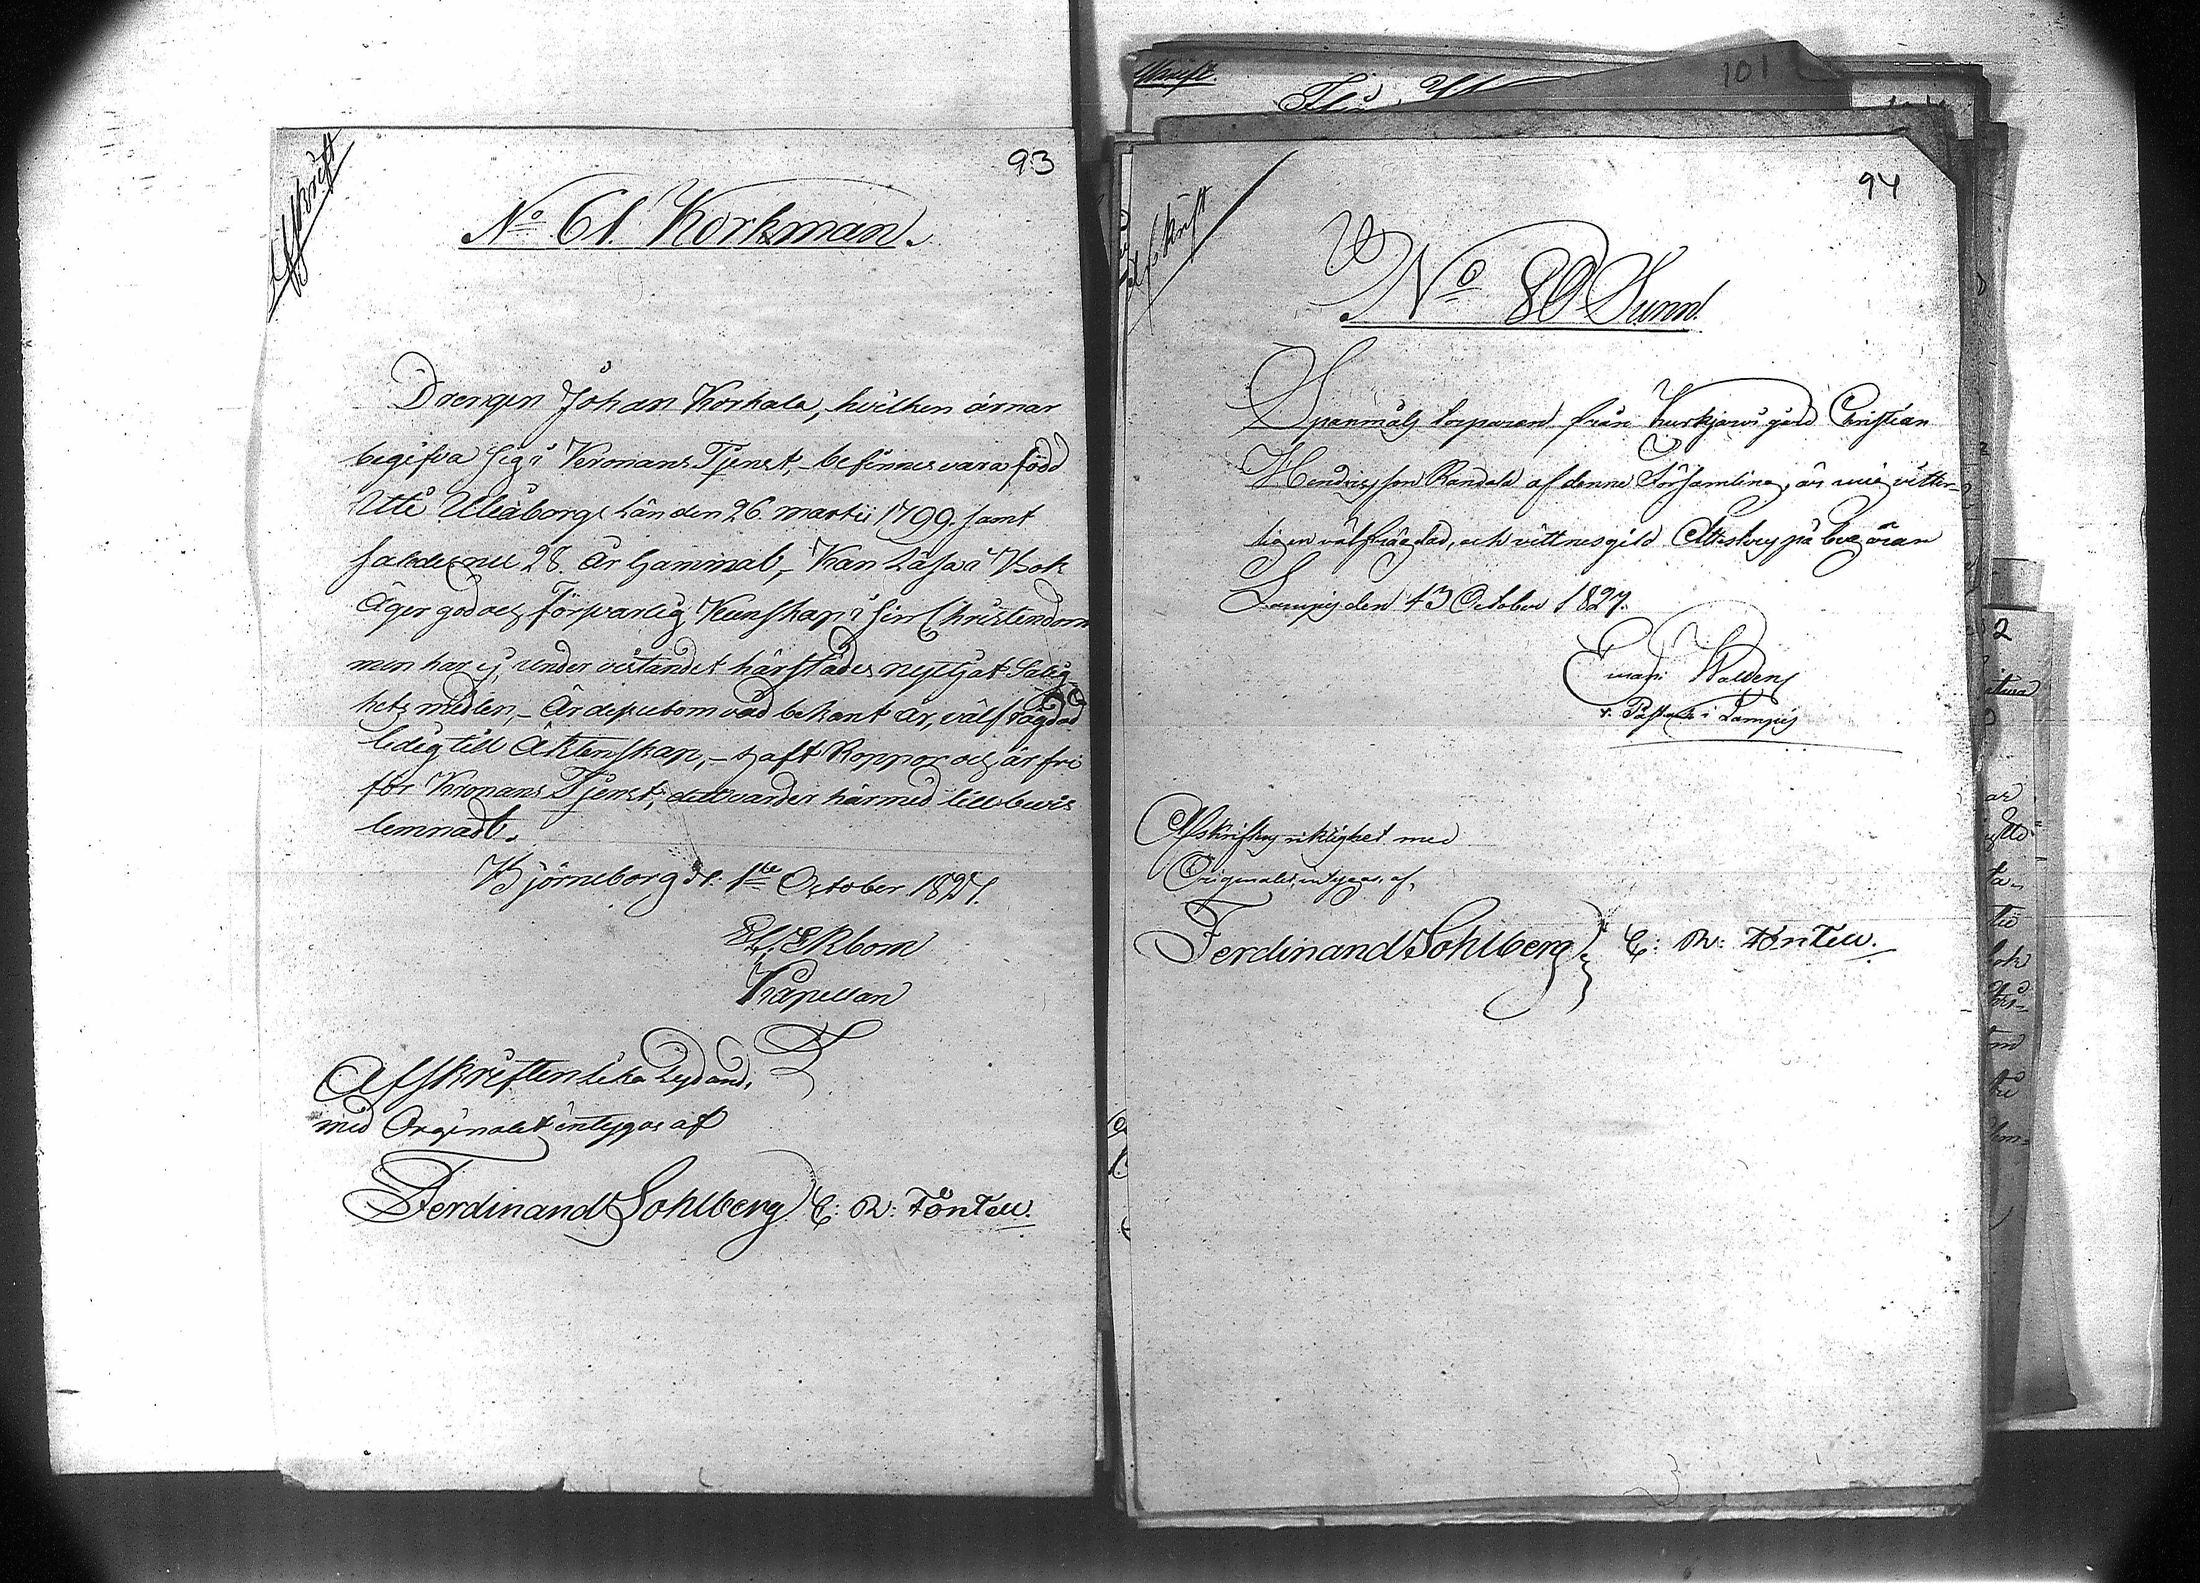 Afskrift
93
No 61. Korkman.
Drengen Johan Korkala, hvilken ärnar
begifva sig i Kronans Tjenst, – befinnes vara född
Uti Uleåborgs Län den 26. martii 1799. samt
således nu 28. år Gammal, – Kan Läsa i Bok
äger god och Försvarlig Kunskap i sin Christendom
men har ej, under vistandet härstädes nyttjat Salig-
hets medlen, – Är dessutom våd bekant är, välfrägdad
ledig till Äktenskap, – haft Koppor och är fri
för Kronans Tjenst; varder härmed till bevis
lemnadt.
Björneborg d. 1ste October 1827.
Ekbom
Kapellan
Afskriftens lika lydand.
med Orginalet intygas af
Ferdinand Sohlberg E: R: Töntell.
101
Afskrift
94
No 80 Sund.
Spanmåls torparen från Kurkjervi gård Christian
Hendricsson Randala af denne Församling, är mig vitter-
ligen välfrägdad, och vittnesgild Attesterns på begäran
Lampis den 13 October 1827.
Eman: Waldens
v. Pastor i Lampis
Afskriftens riktighet med
Originalet, intygas, af,
Ferdinand Sohlberg E: R: Töntell.